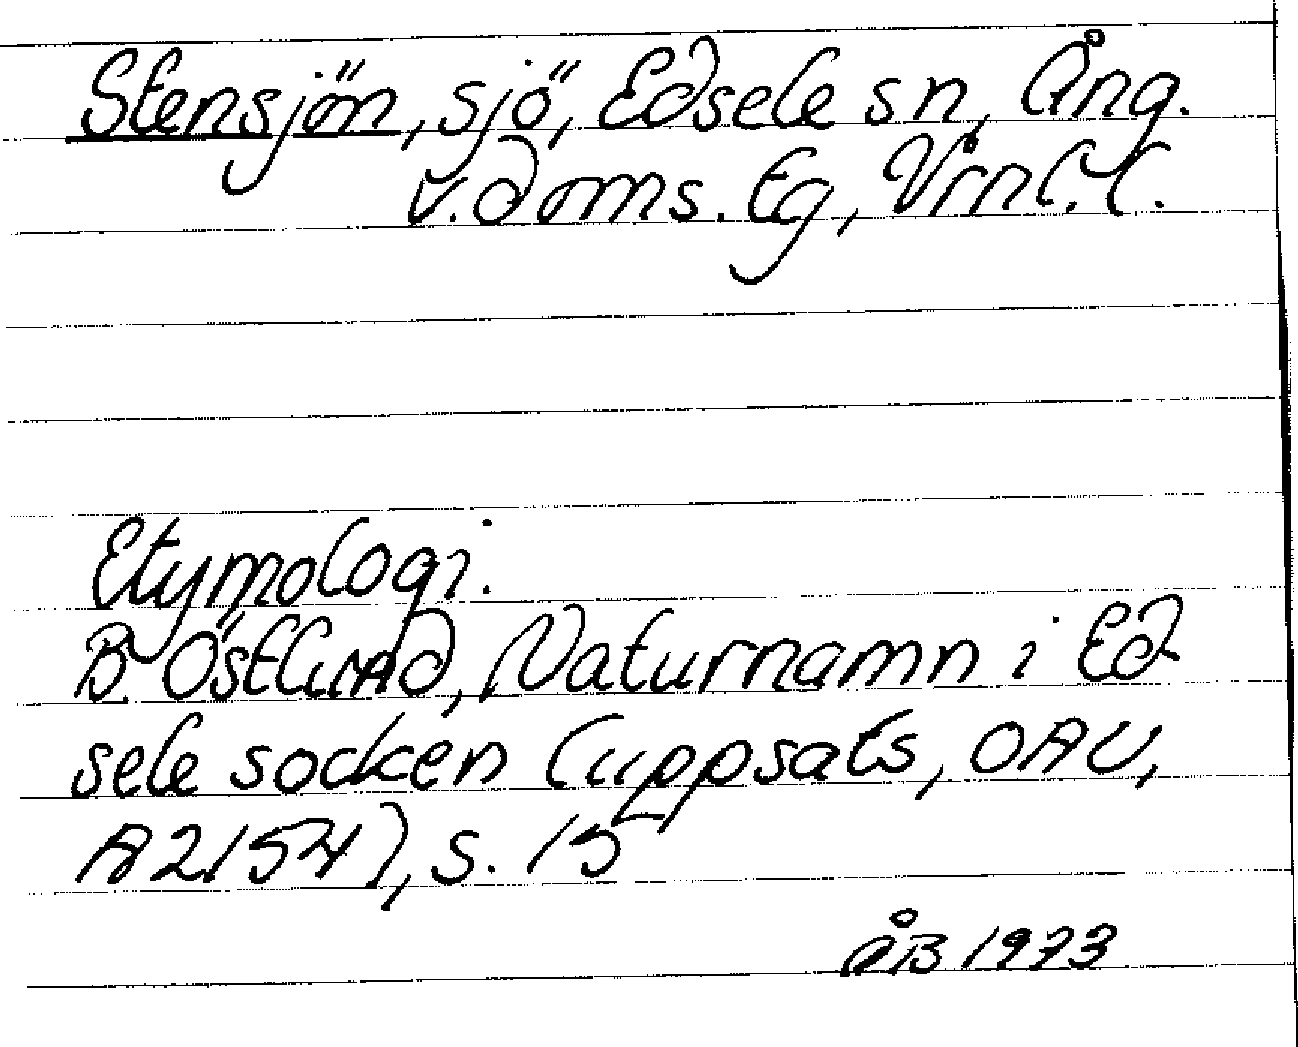 Stensjön, sjö, Edsele sn, Ång.
v. doms. tg, Vrnl. l.
Etymologi.
B. Östlund, Naturnamn i Ed
sele socken (uppsats, OAU,
A2154), s. 15
ÅB 1973